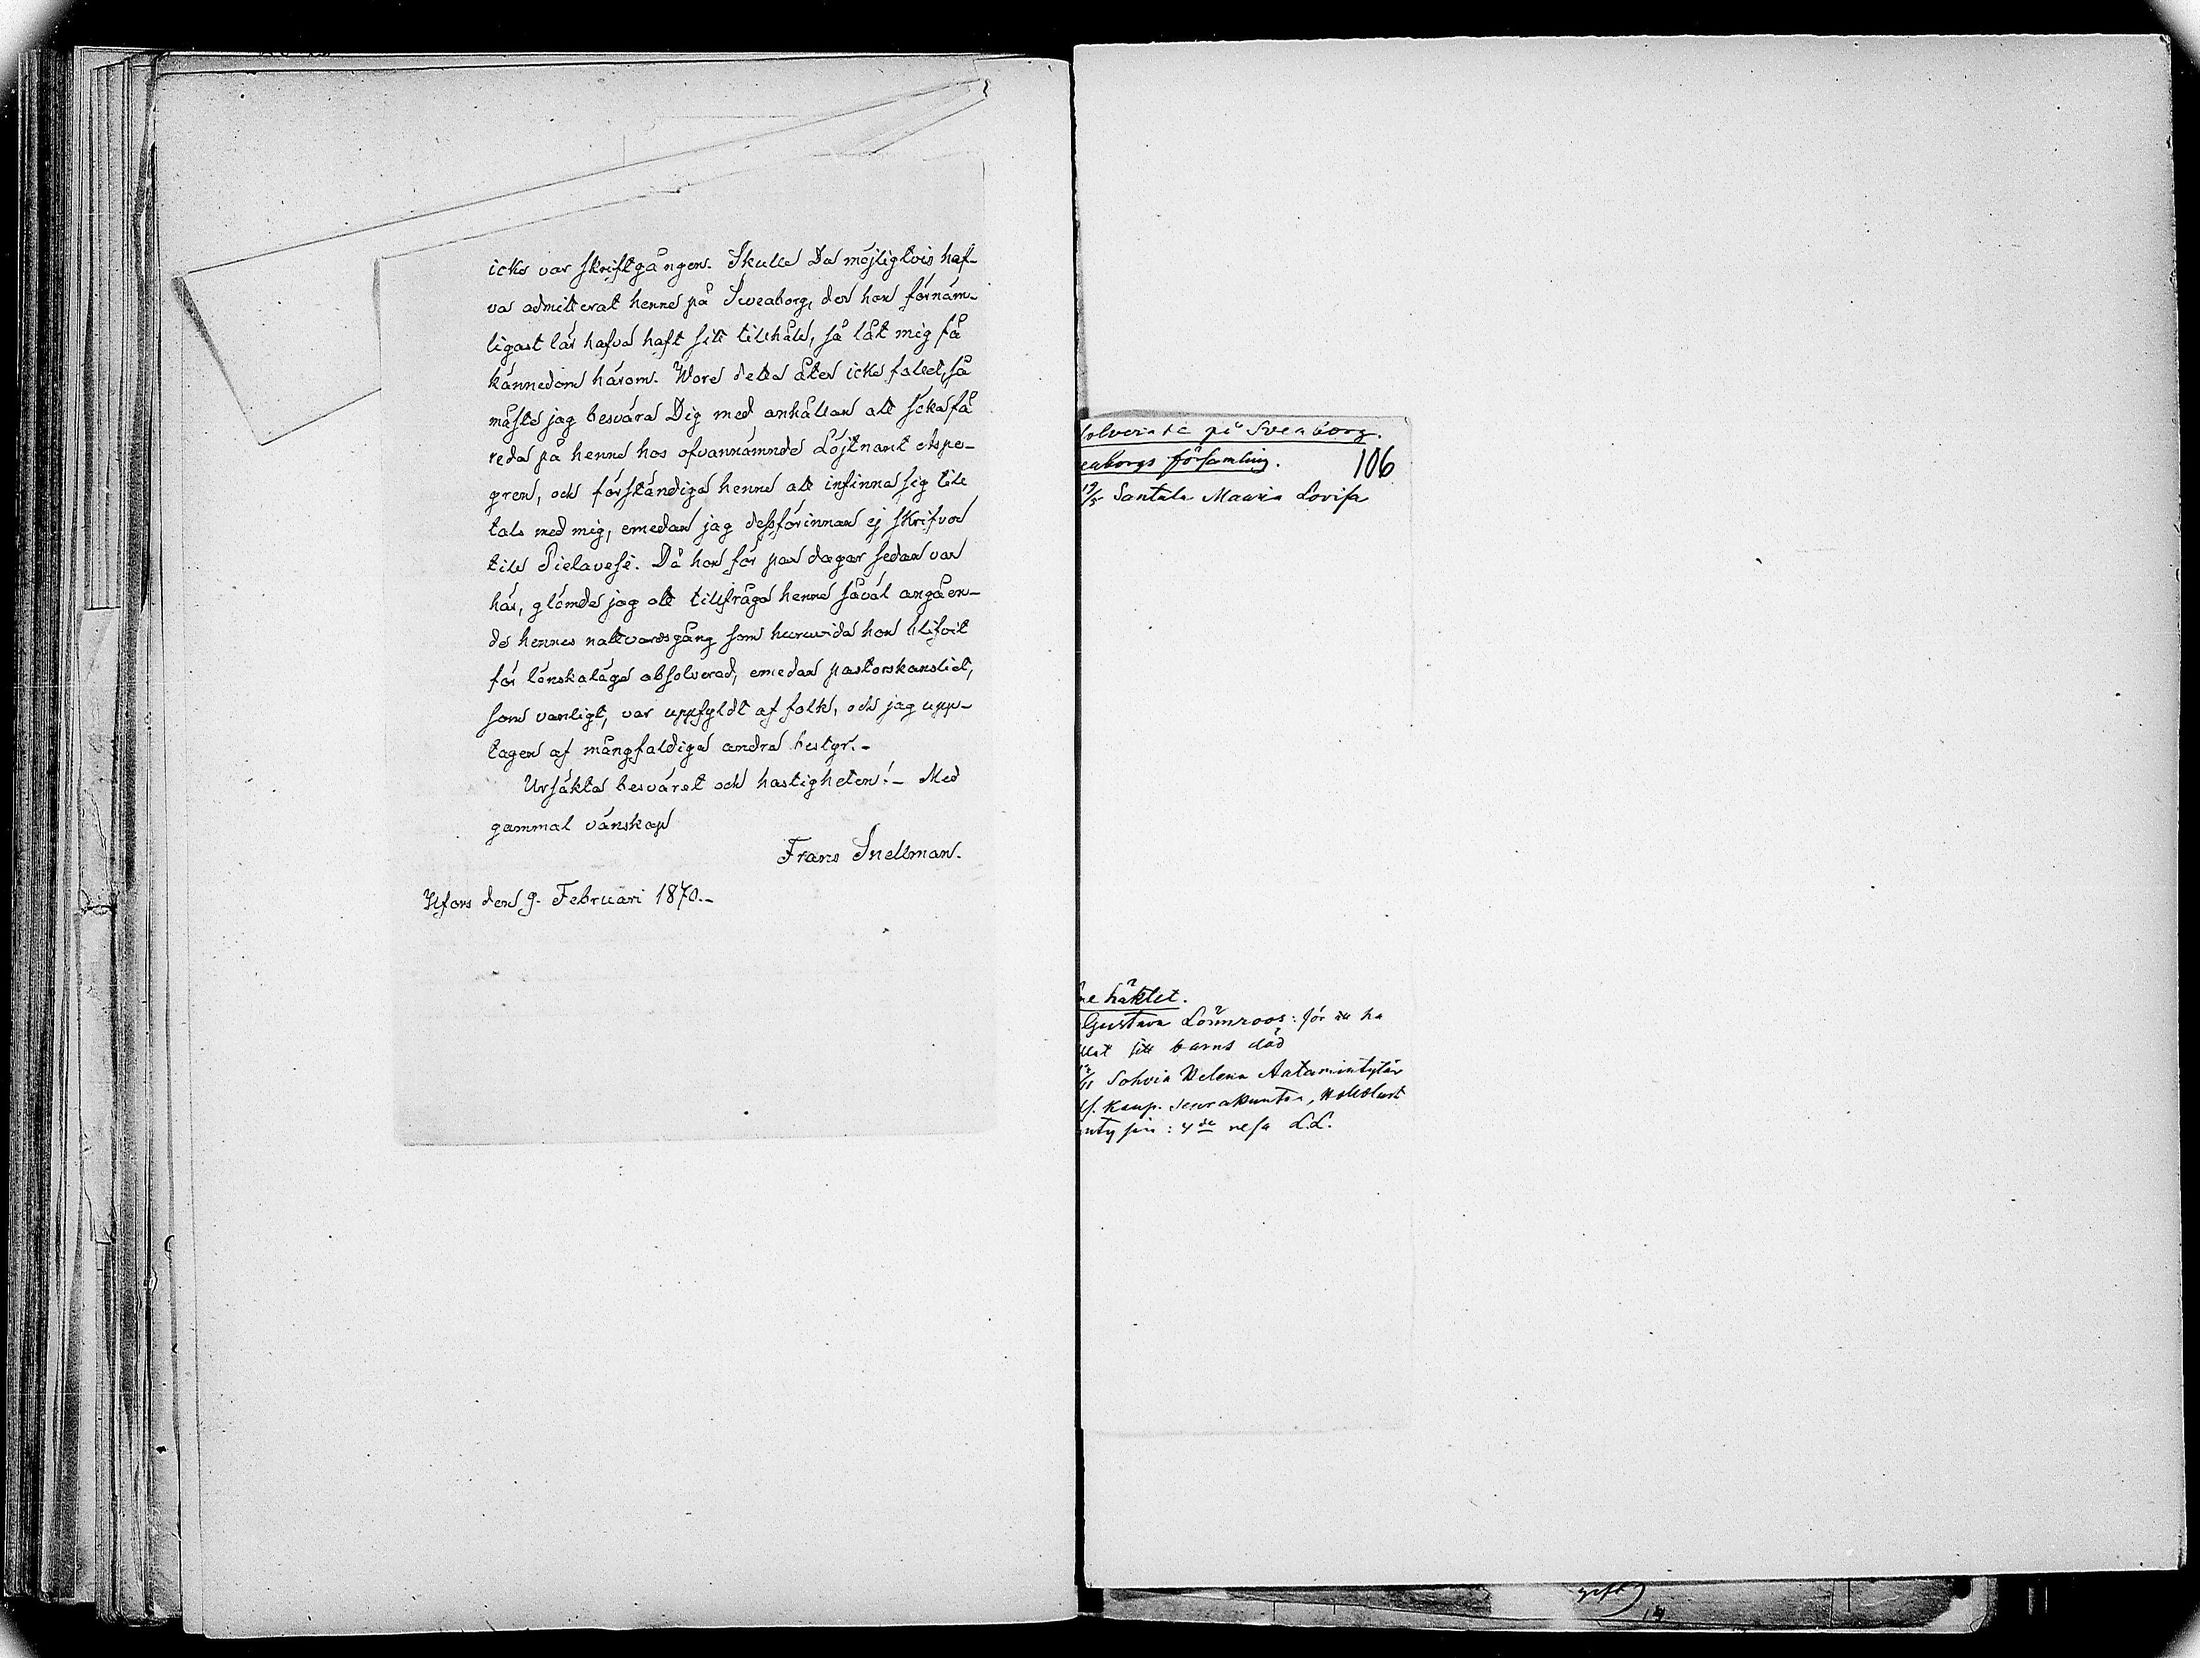 icke var skriftgången. Skulle Du möjligtvis haf-
va admitterat henne på Sweaborg, der hon förnäm-
ligast lär hafva haft sitt tillhåll, så låt mig få
kännedom härom. Wore detta åter icke fallet, så
måste jag besvära Dig med anhållan att söka få
reda på henne hos ofvannämnde Löjtnant Aspe-
gren, och förständiga henne att infinna sig till
tals med mig, emedan jag dessförinnan ej skrifver
till Pielavesi. Då hon för par dagar sedan var
här, glömde jag att tillfråga henne såväl angåen-
de hennes nattvardsgång som huruvida hon blifvit
för lönskaläge absolverad, emedan pastorskansliet,
som vanligt, var uppfyldt af folk, och jag upp-
tagen af mångfaldiga andra bestyr.-
Ursäkta besväret och hastigheten!- Med
gammal vänskap
Frans Snellman.
Hfors den 9. Februari 1870.-
solverade på Sveaborg.
eaborgs församling.
106
19/5 Santala Maaria Lovisa
ne häktet.
Gustava Lönnroos: för att ha
llat sitt barns död
/11 Sohvia Helena Aatamintytär
kaup. seurakuntaa,
nty siu: 4de resa L.L.
gift
14